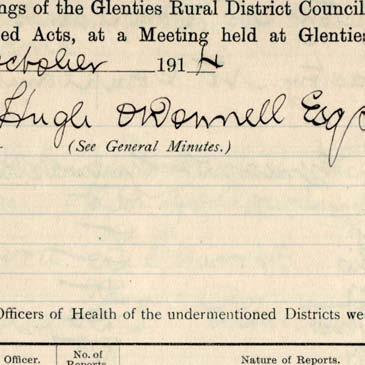 ngs of the Glenties Rural District Council
ed Acts, at a Meeting held at Glenties
october 1914
Hugh O'Donnell Esq
(See General Minutes.)
Officers of Health of the undermentioned Districts we
Officer. No. of Reports. Nature of Reports.